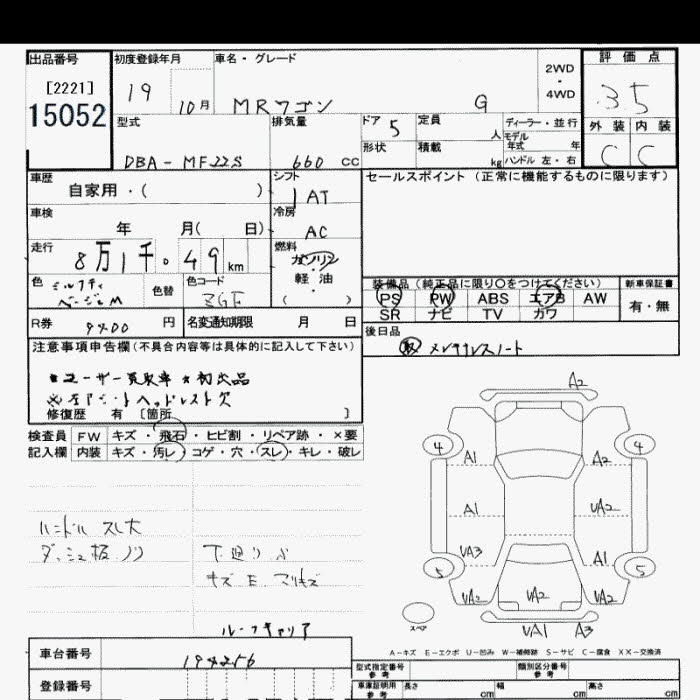 出品番号 初度登録年月 車名・グレード 2WD・4WD 評価点
[2221]
15052
19 10月 MRワゴン G 3.5
型式 排気量 ドア 5 定員 人 ディーラー・並行 外装 内装
モデル年式 年
DBA-MF22S 660 CC 形状 積載 kg ハンドル 左・右 C C
車歴 シフト セールスポイント (正常に機能するものに限ります)
自家用・( ) AT
車検 冷房
年 月( 日) AC
走行 燃料
8万1千.49km ガソリン・軽油
色 ミルクティベージュM 色替 色コード ZGF ( )
装備品 (純正品に限り○をつけてください) 新車保証書
PS PW ABS エアB AW 有・無
SR ナビ TV カワ
R券 9400 円 名変通知期限 月 日
後日品
取 メンテナンスノート
注意事項申告欄(不具合内容等は具体的に記入して下さい)
★ユーザー買取車 ★初出品
※左Fシートヘッドレスト欠
修復歴 有 [箇所 ]
検査員 FW キズ・飛石・ヒビ割・リペア跡・×要
記入欄 内装 キズ・汚レ・コゲ・穴・スレ・キレ・破レ
ハンドル スレ大
ダッシュ板 ノリ
下廻り
キズ E マリキズ
ルーフキャリア
A2
4 4
A1 A2
A1 UA2
UA3 A1
5 5
UA2 UA2 UA2
スペア
UA1 A3
A-キズ E-エクボ U-凹み W-補修跡 S-サビ C-腐食 XX-交換済
車台番号 194256
登録番号
型式指定番号 参考 類別区分番号 参考
車庫証明用 参考 長さ cm 幅 cm 高さ cm